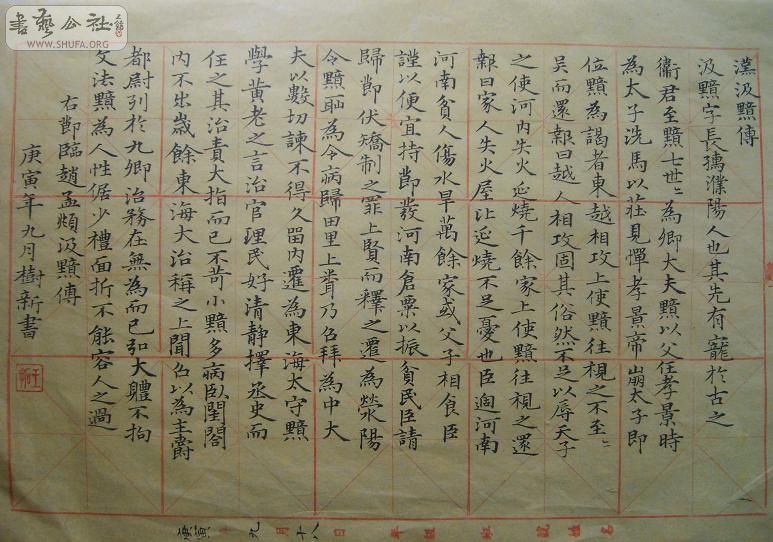 漢汲黯傳
汲黯字長孺濮陽人也其先有寵於古之
衞君至黯七世〻為卿大夫黯以父任孝景時
為太子洗馬以莊見憚孝景帝崩太子即
位黯為謁者東越相攻上使黯往視之不至〻
吳而還報曰越人相攻固其俗然不足以辱天子
之使河內失火延燒千餘家上使黯往視之還
報曰家人失火屋比延燒不足憂也臣過河南
河南貧人傷水旱萬餘家或父子相食臣
謹以便宜持節發河南倉粟以振貧民臣請
歸節伏矯制之罪上賢而釋之遷為滎陽
令黯恥為令病歸田里上聞乃召拜為中大
夫以數切諫不得久留內遷為東海太守黯
學黃老之言治官理民好清静擇丞史而
任之其治責大指而已不苛小黯多病臥閨閤
內不出歲餘東海大治稱之上聞召以為主爵
都尉列於九卿治務在無為而已弘大體不拘
文法黯為人性倨少禮面折不能容人之過
右節臨趙孟頫汲黯傳
庚寅年九月樹新書
書藝公社
WWW.SHUFA.ORG
庚寅年九月十八日
年 組 班 號 姓名